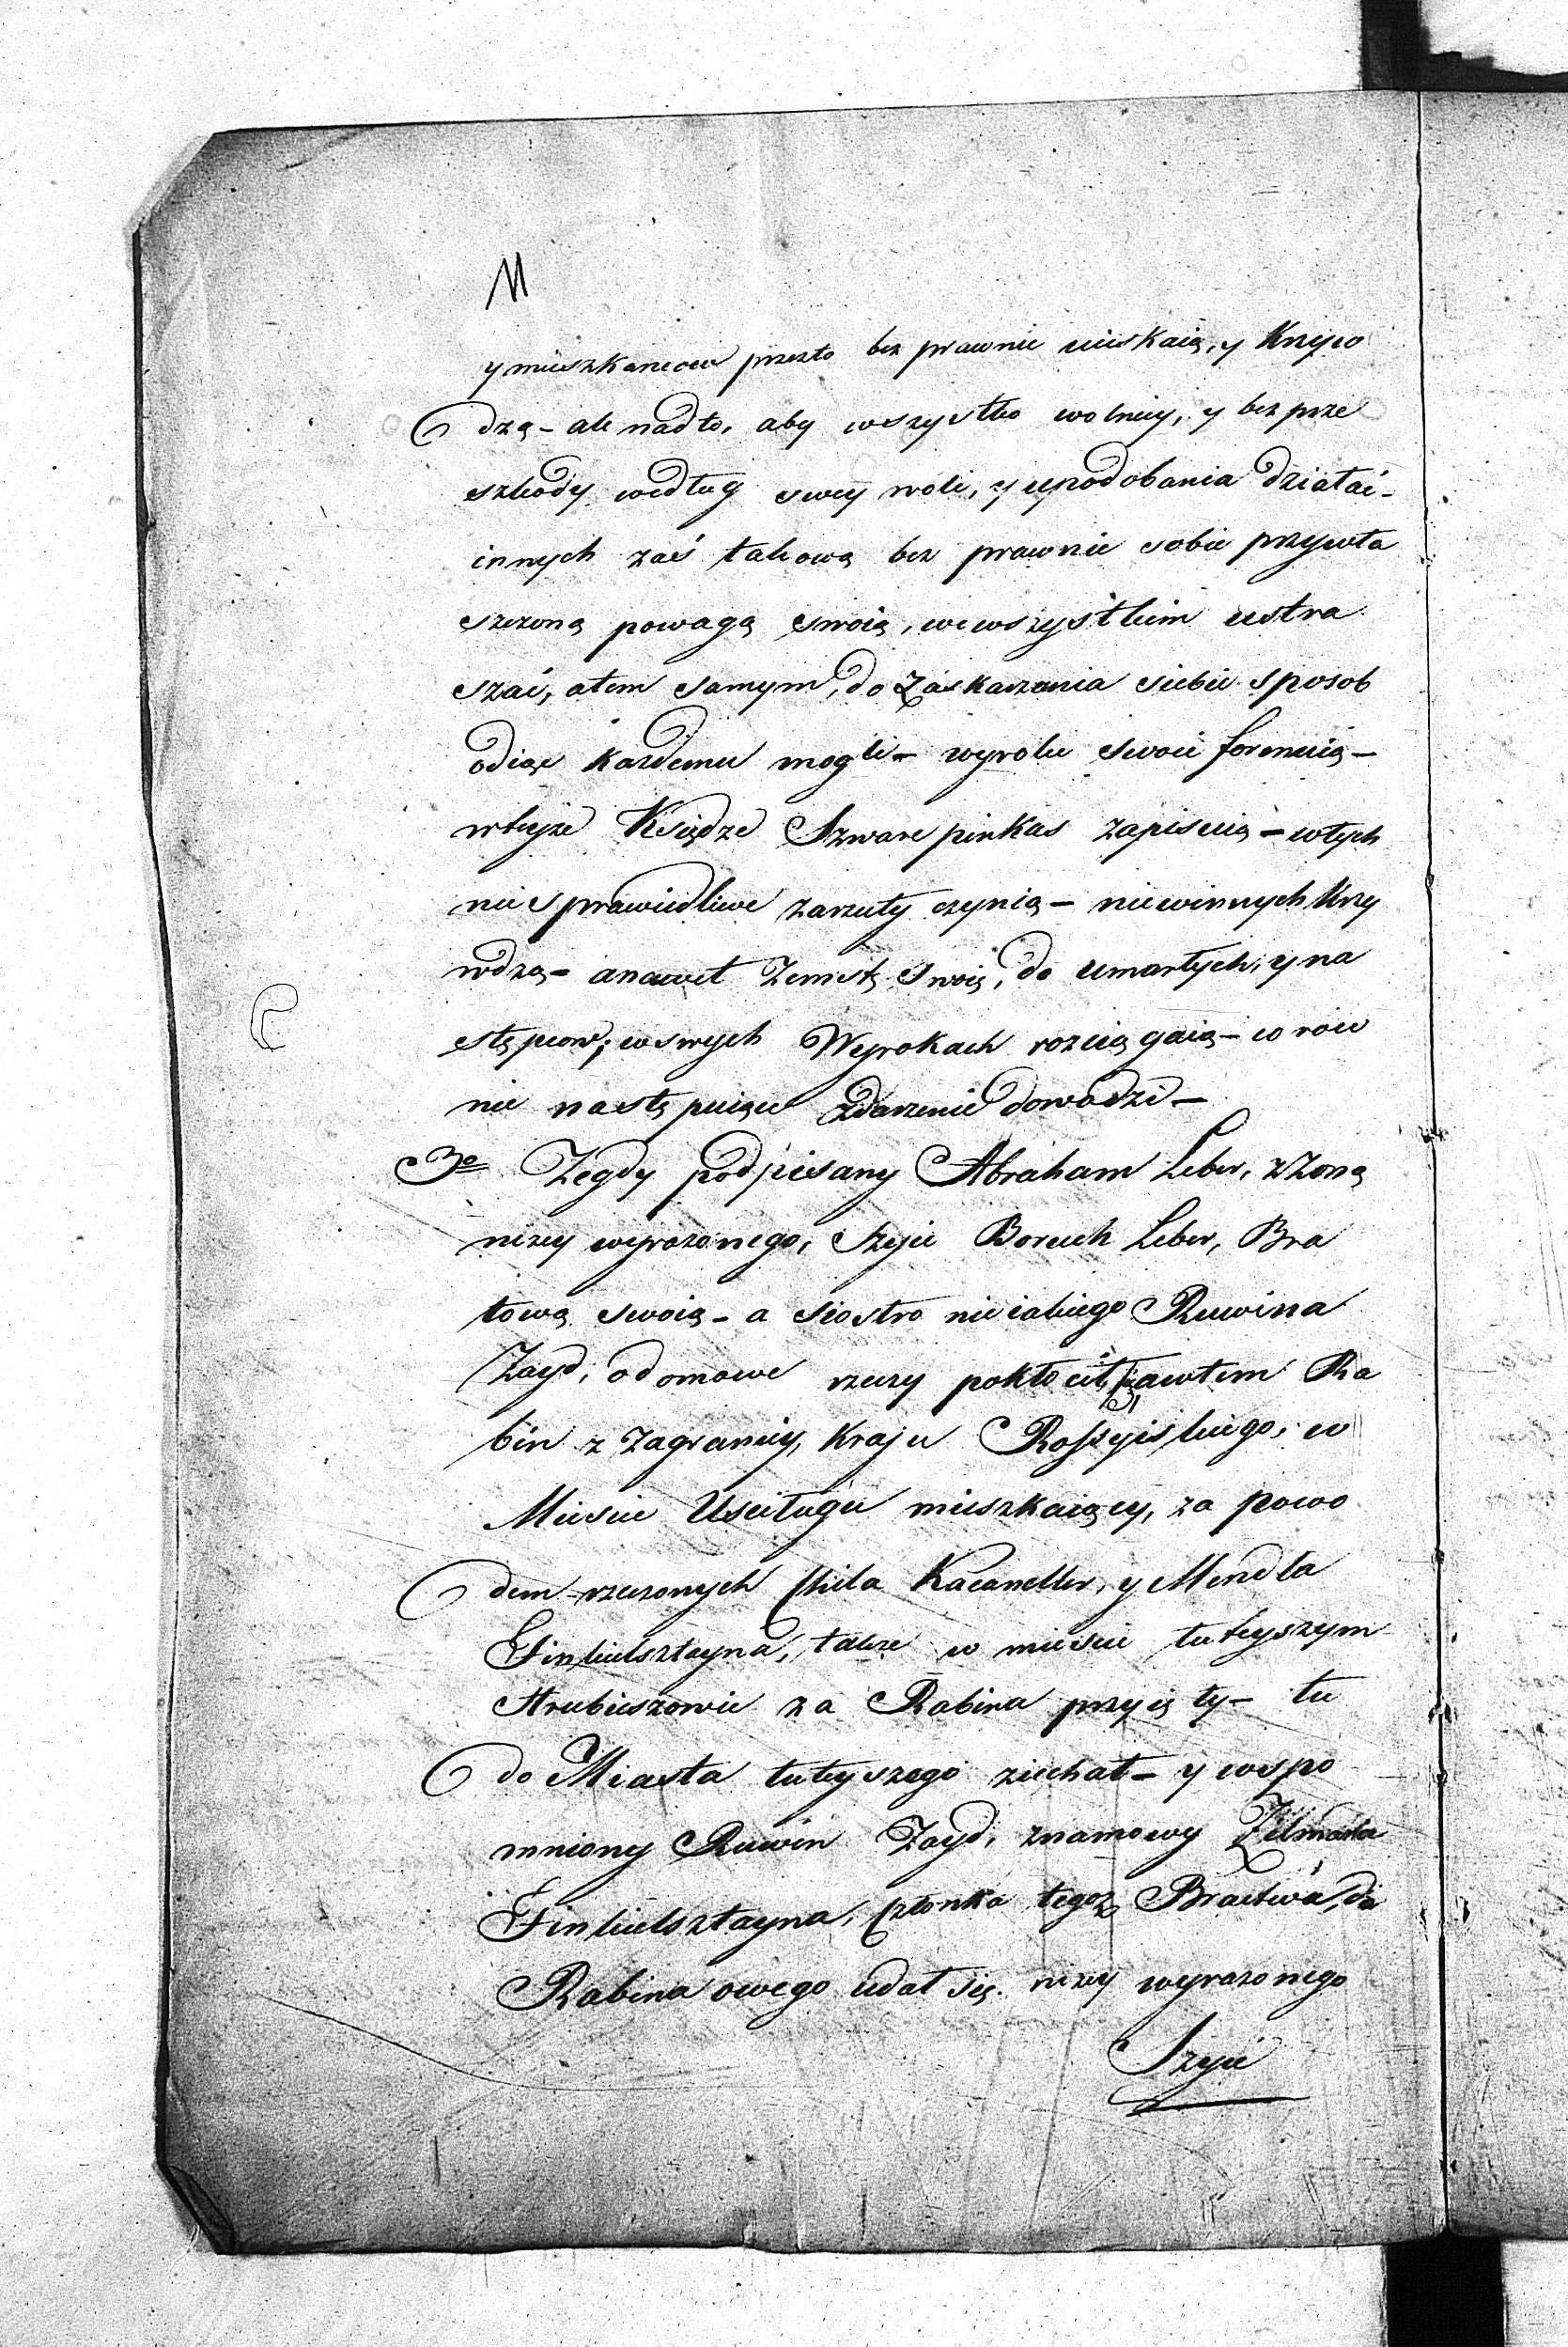 11
y mieszkancow przezto bez prawnie uciskaią, y Krzyw
dzą – ale nadto, aby wszystko wolniey, y bez prze
szkody według swey woli, y upodobania działać –
innych zaś takową bez prawnie sobie przywła
szczoną powagą swoią, wewszystkim ustra
szać, atem samym, do Zaskarzenia siebie sposob
odiąć kazdemu mogli – wyroki swoie formuią –
wteyze Księdze Szwarc pinkas zapisuią – wtych
niesprawiedliwe zarzuty czynią – niewinnych Krzy
wdzą – anawet Zemstę swoią, do umarłych, y na
stępcow, wswych Wyrokach rozciągaią – co rów
nie następuiące zdarzenie dowodzi –
3o Zegdy podpisany Abraham Leber, z Zoną
nizey wyrazonego, Szyie Boruch Leber, Bra
tową swoią – a siostro nieiakiego Ruwina
Zayd, odomowe rzeczy pokłocił się, awtem Ra
bin z Zagranicy, Kraju Rossyiskiego, w
Miescie Uscilugu mieszkaiący, za powo
dem rzeczonych Chila Kacanellen, y Mendla
Finkielsztayna, także w miescie tuteyszym
Hrubieszowie za Rabina przyięty – tu
do Miasta tuteyszego ziechał – y wspo
mniony Ruwin Zayd, znamowy Zelmana
Finkielsztayna, Członka tegoz Bractwa, do
Rabina owego udał się. nizey wyrazonego
Szyie